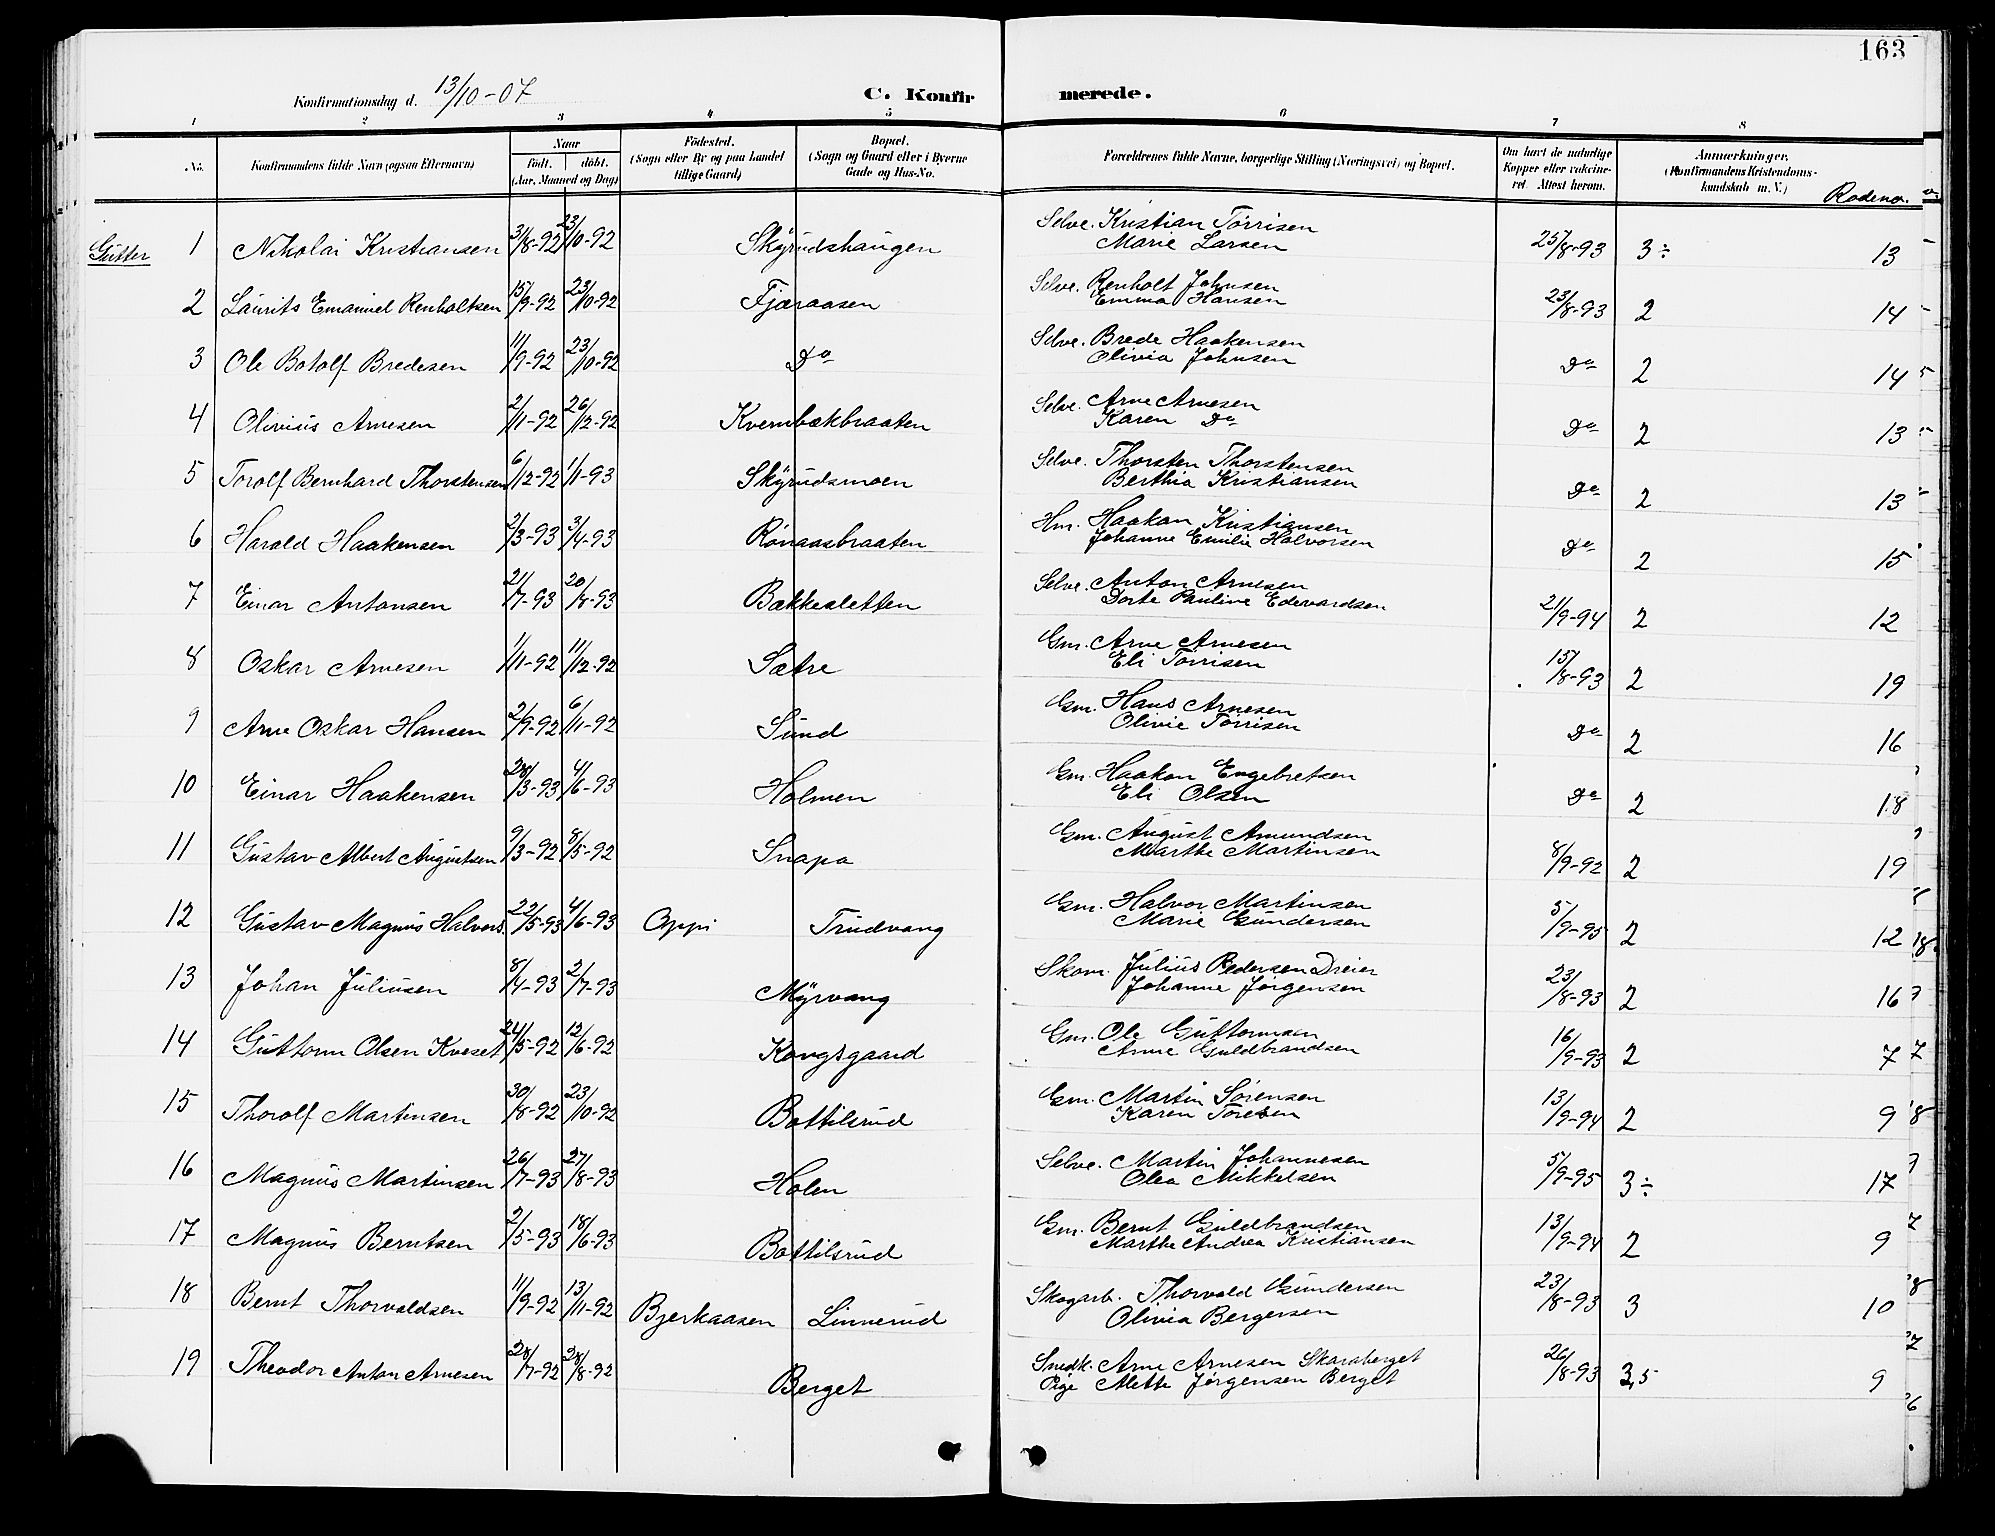 163
Konfirmationsdag d. 13/10-07
C. Konfir merede.
1 2 3 4 5 6 7 8
No. Konfirmandens fulde Navn (ogsaa Efternavn) Naar födt. döbt. (Aar, Maaned og Dag) Födested. (Sogn eller By og paa Landet tillige Gaard) Bopæl. (Sogn og Gaard eller i Byerne Gade og Hus-No. Forældrenes fulde Navne, borgerlige Stilling (Næringsvei) og Bopæl. Om havt de naturlige Kopper eller vaccineret. Attest herom. Anmærkninger. (Konfirmandens Kristendomskundskab m. V.) Rodeno.
Gutter 1 Nikolai Kristiansen 31/8-92 23/10-92 Skyrudshaugen Selve. Kristian Torrisen 25/8-93 3÷ 13
Marie Larsen
2 Laurits Emanuel Renholtsen 15/9-92 23/10-92 Fjæraasen Selve. Renholt Johnsen 23/8-93 2 14
Emma Hansen
3 Ole Botolf Bredesen 11/9-92 23/10-92 Do Selve. Brede Haakensen Do 2 14
Olivia Johnsen
4 Olivius Arnesen 2/11-92 26/12-92 Kvernbækbraaten Selve. Arne Arnesen Do 2 13
Karen Do
5 Torolf Bernhard Thorstensen 6/12-92 1/1-93 Skyrudsmoen Selve. Thorsten Thorstensen Do 2 13
Berthia Kristiansen
6 Harald Haakensen 2/3-93 3/4-93 Rønaasbraaten Hm. Haakon Kristiansen Do 2 15
Johanne Emilie Halvorsen
7 Einar Antonsen 21/7-93 20/8-93 Bakkesletten Selve. Anton Arnesen 21/9-94 2 12
Dorte Pauline Edevardsen
8 Oskar Arnesen 1/11-92 11/12-92 Sætre Gm. Arne Arnesen 15/8-93 2 19
Eli Torrisen
9 Arne Oskar Hansen 2/9-92 6/11-92 Sund Gm. Hans Arnesen Do 2 16
Olivie Torrisen
10 Einar Haakensen 28/3-93 4/6-93 Holmen Gm. Haakon Engebretsen Do 2 18
Eli Olsen
11 Gustav Albert Augustsen 9/3-92 8/5-92 Snapa Gm. August Amundsen 8/9-92 2 19
Marthe Martinsen
12 Gustav Magnus Halvors. 22/5-93 4/6-93 Oppi Trudvang Gm. Halvor Martinsen 5/9-95 2 12
Marie Gundersen
13 Johan Juliusen 8/4-93 2/7-93 Myrvang Skom. Julius Pedersen Dreier 23/8-93 2 16
Johanne Jørgensen
14 Guttorm Olsen Kveset 24/5-92 12/6-92 Kongsgaard Gm. Ole Guttormsen 16/9-93 2 7
Anne Guldbrandsen
15 Thorolf Martinsen 30/8-92 23/10-92 Bottilsrud Gm. Martin Sørensen 13/9-94 2 9
Karen Toresen
16 Magnus Martinsen 26/7-93 27/8-93 Holen Selve. Martin Johannesen 5/9-95 3÷ 17
Olea Mikkelsen
17 Magnus Berntsen 2/5-93 18/6-93 Bottilsrud Gm. Bernt Guldbrandsen 13/9-94 2 9
Marthe Andrea Kristiansen
18 Bernt Thorvaldsen 11/9-92 13/11-92 Bjerkaasen Linnerud Skogarb. Thorvald Gundersen 23/8-93 3 10
Olivia Bergersen
19 Theodor Anton Arnesen 28/7-92 28/8-92 Berget Snedk. Arne Arnesen Skaraberget 26/8-93 3,5 9
Pige Alette Jørgensen Berget